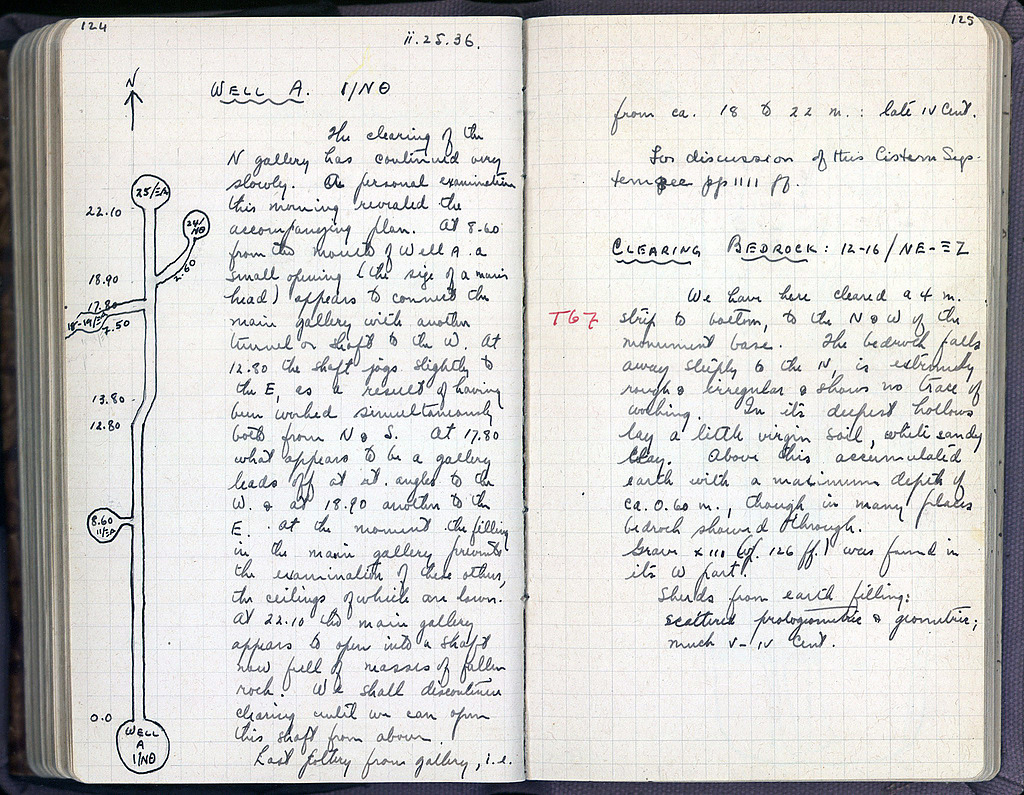 124
ii.25.36.
N
WELL A. 1/ΝΘ
The clearing of the
N gallery has continued very
slowly. A personal examination
this morning revealed the
accompanying plan. At 8.60
from the mouth of Well A. a
small opening (the size of a man's
head) appears to connect the
main gallery with another
tunnel or shaft to the W. At
12.80 the shaft jogs slightly to
the E, as a result of having
been worked simultaneously
both from N & S. At 17.80
what appears to be a gallery
leads off at rt. angles to the
W. & at 18.90 another to the
E. At the moment the filling
in the main gallery prevents
the examination of these others,
the ceilings of which are lower.
At 22.10 the main gallery
appears to open into a shaft
now full of masses of fallen
rock. We shall discontinue
clearing until we can open
this shaft from above.
Last pottery from gallery, i.e.
25/ΞΑ
22.10
24/
ΝΘ
2.60
18.90
17.80
18-19/ΞΑ
7.50
13.80
12.80
8.60
11/ΞΑ
0.0
WELL
A
1/ΝΘ
125
from ca. 18 to 22 m.: late IV Cent.
For discussion of this Cistern Sys-
tem see pp 1111 ff.
CLEARING BEDROCK: 12-16/ΝΕ-ΞΖ
We have here cleared a 4 m.
T67
strip to bottom, to the N & W of the
monument base. The bedrock falls
away steeply to the N, is extremely
rough & irregular & shows no trace of
working. In its deepest hollows
lay a little virgin soil, white sandy
clay. Above this accumulated
earth with a maximum depth of
ca. 0.60 m., though in many places
bedrock showed through.
Grave x 111 (cf. 126 ff.) was found in
its W part.
Sherds from earth filling:
scattered protogeometric & geometric;
much V-IV Cent.